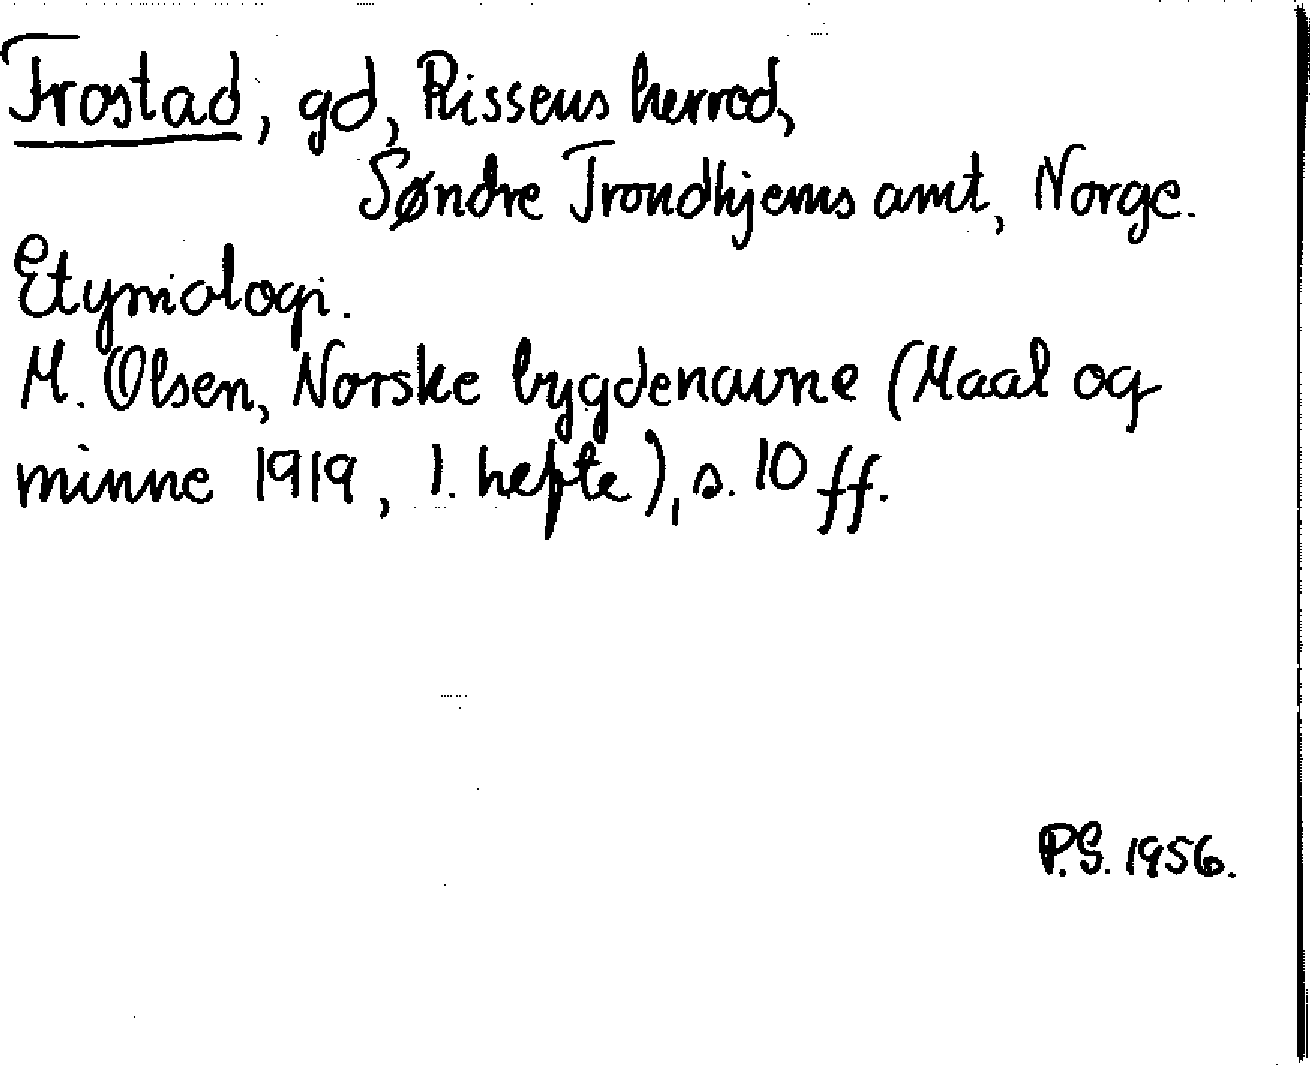 Trostad, gd, Rissens herred,
Søndre Trondhjems amt, Norge.
Etymologi.
M. Olsen, Norske bygdenavne (Maal og
minne 1919, 1. hefte), s. 10 ff.
P.S. 1956.